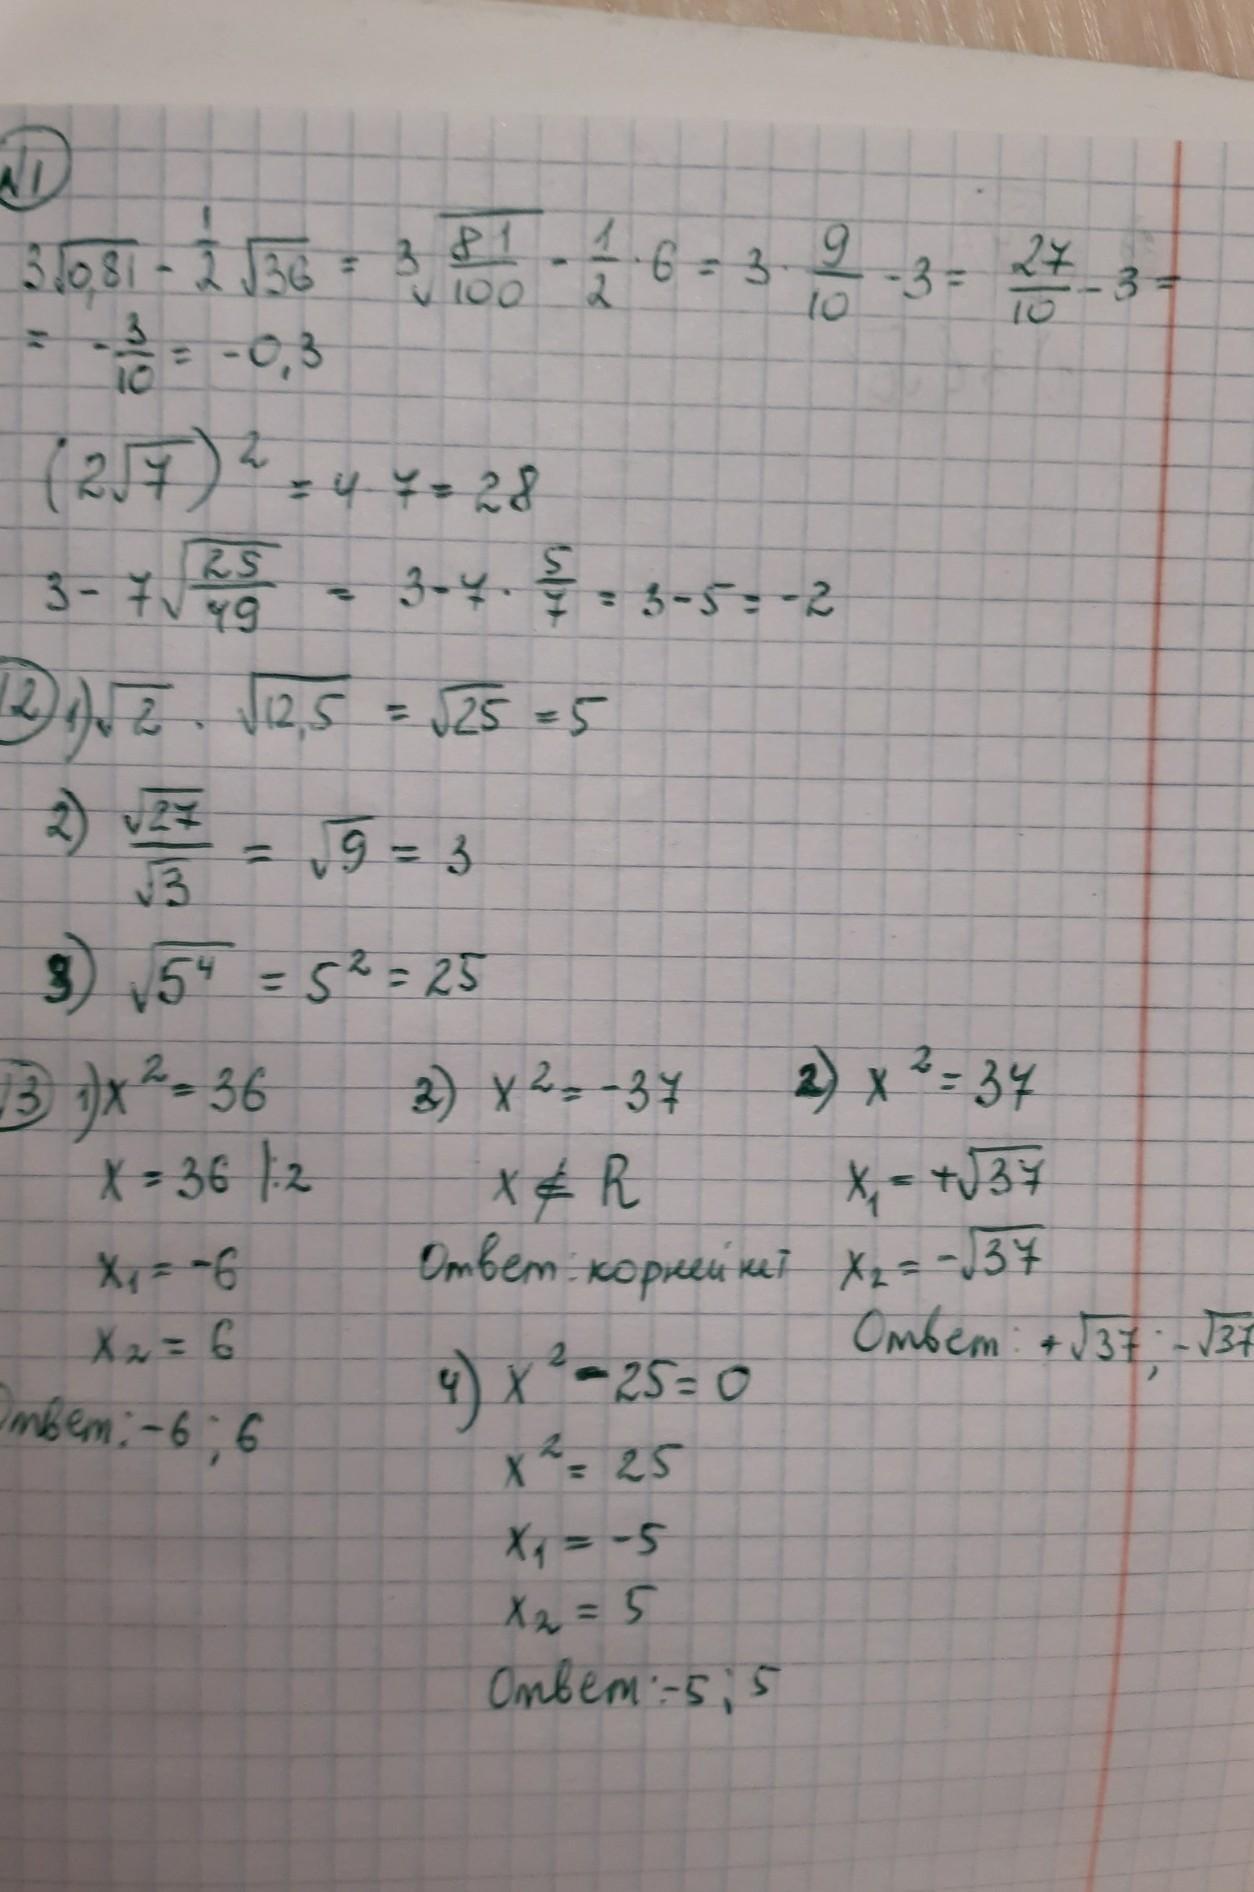 №1
3√0,81 - 1/2 √36 = 3√81/100 - 1/2 · 6 = 3 · 9/10 - 3 = 27/10 - 3 =
= - 3/10 = -0,3
(2√7)² = 4 7 = 28
3 - 7√25/49 = 3 - 7 · 5/7 = 3 - 5 = -2
№2 1) √2 · √12,5 = √25 = 5
2) √27/√3 = √9 = 3
3) √5⁴ = 5² = 25
№3 1) x² = 36
x = 36 |:2
x₁ = -6
x₂ = 6
Ответ: -6; 6
3) x² = -37
x ∉ R
Ответ: корней нет
4) x² - 25 = 0
x² = 25
x₁ = -5
x₂ = 5
Ответ: -5; 5
2) x² = 37
x₁ = +√37
x₂ = -√37
Ответ: +√37; -√37